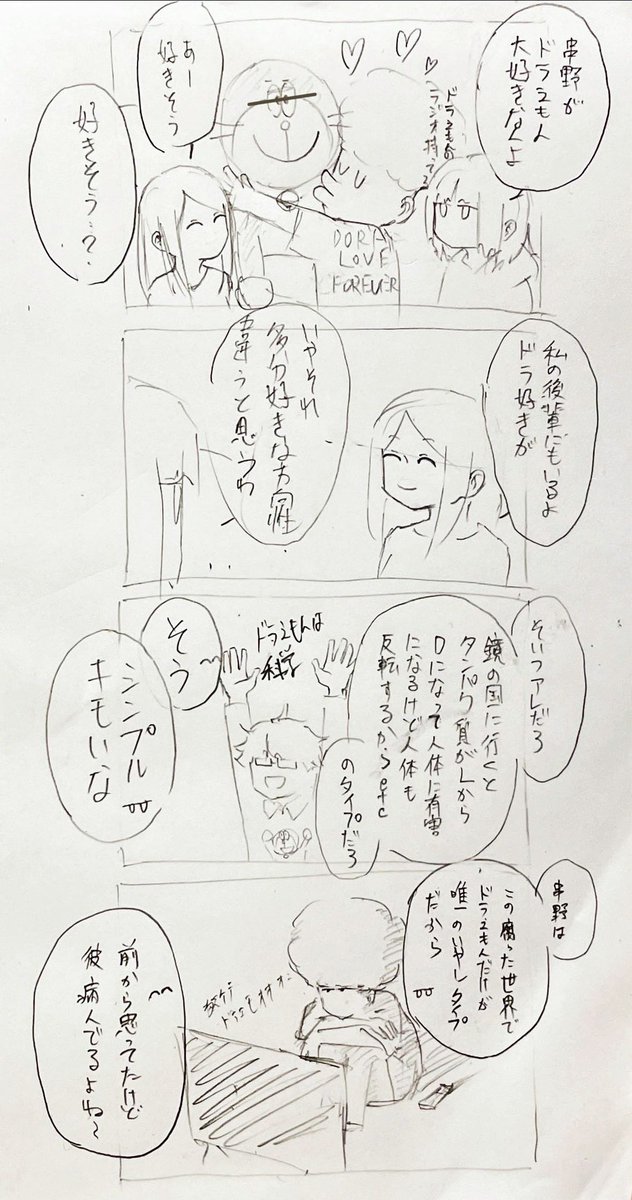 串野が
ドラえもん
大好きなんよ
ドラえもんの
ラジオ持ってる
DORA
LOVE
FOREVER
あー
好きそう
好きそう…?
私の後輩にもいるよ
ドラ好きが
いやそれ
多分好きな方向性
違うと思うわ
そいつアレだろ
鏡の国に行くと
タンパク質がLから
Dになって人体に有害
になるけど人体も
反転するから etc
のタイプだろ
ドラえもんは
科学
そう〜
シンプル
キモいな
串野は
この腐った世界で
ドラえもんだけが
唯一のいやしタイプ
だから
前から思ってたけど
彼病んでるよね〜